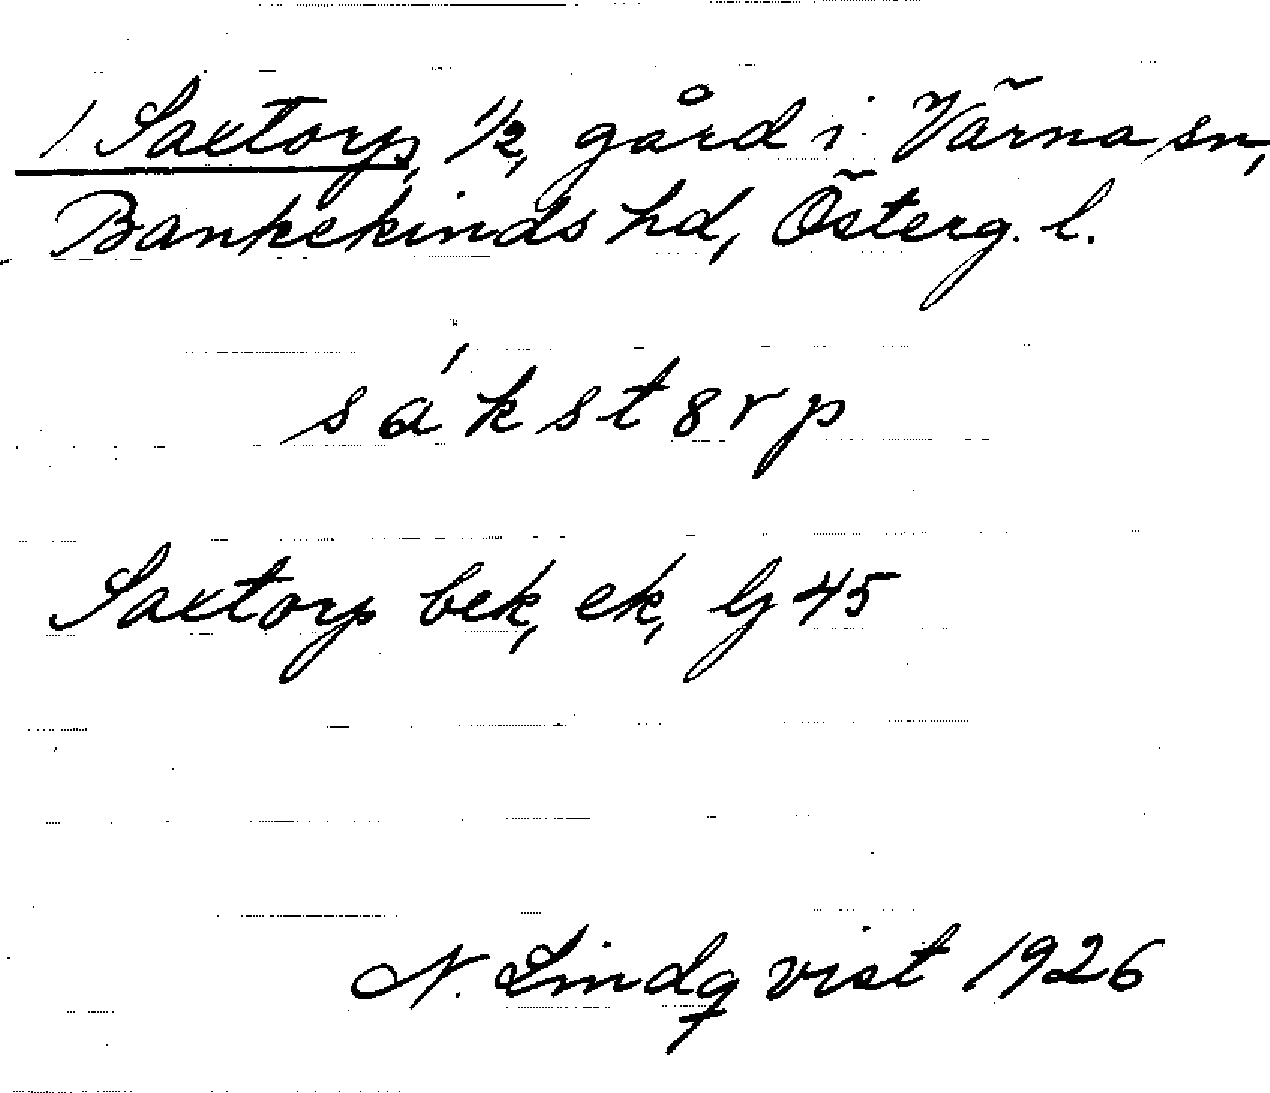 1 Saxtorp, 1/2, gård i Värna sn,
Bankekinds hd, Österg. l.
sákst8rp
Saxtorp bek, ek, Gj 45
N. Lindqvist 1926